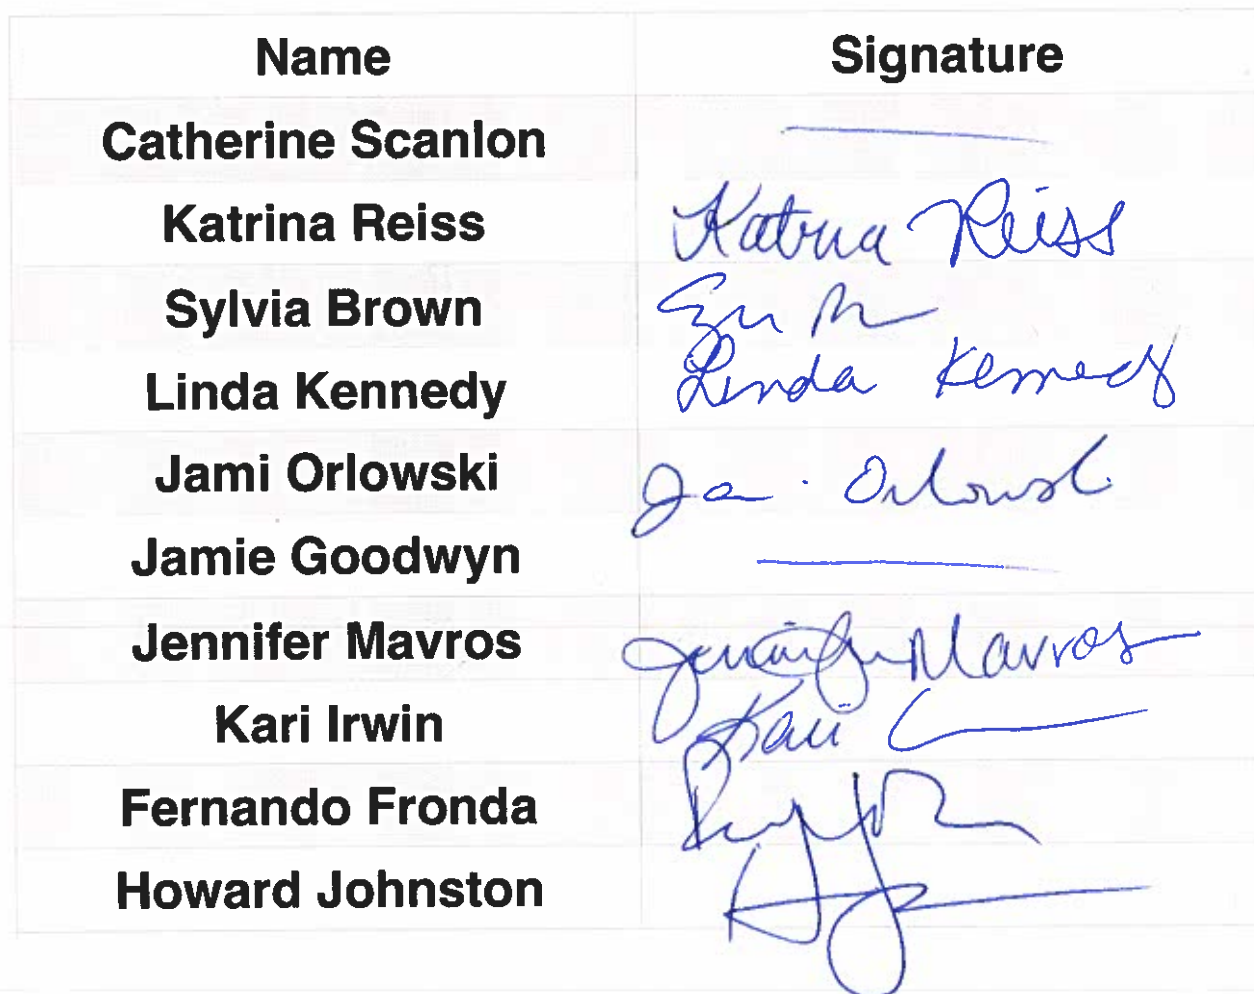 Name Signature
Catherine Scanlon
Katrina Reiss Katrina Reiss
Sylvia Brown
Linda Kennedy Linda Kennedy
Jami Orlowski Jami Orlowski
Jamie Goodwyn
Jennifer Mavros Jennifer Mavros
Kari Irwin Kari
Fernando Fronda
Howard Johnston